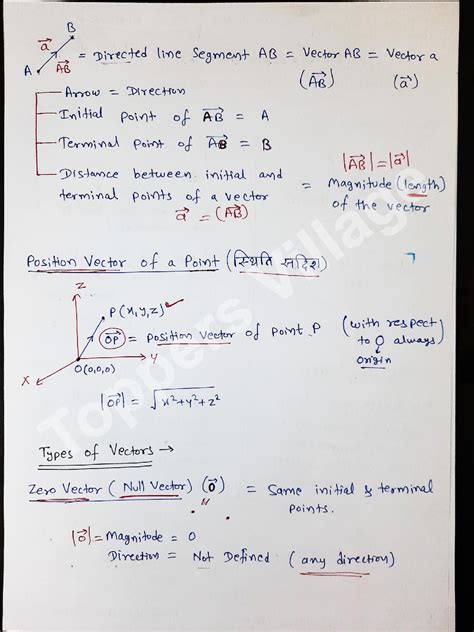 B
a⃗
A AB⃗ = Directed line Segment AB = Vector AB = Vector a
(AB⃗) (a⃗)
Arrow = Direction
Initial Point of AB⃗ = A
Terminal Point of AB⃗ = B
|AB⃗| = |a⃗|
Distance between initial and
terminal points of a vector = Magnitude (length)
of the vector
a⃗ = (AB⃗)
Position Vector of a Point (स्थिति सदिश)
Z
P(x,y,z) ✓
OP⃗ = position Vector of point P (with respect
to O always)
origin
Y
X
O(0,0,0)
|OP⃗| = √x²+y²+z²
Types of Vectors →
Zero Vector (Null Vector) (0⃗) = Same initial & terminal
points.
|0⃗| = Magnitude = 0
Direction = Not Defined (any direction)
Toppers Village